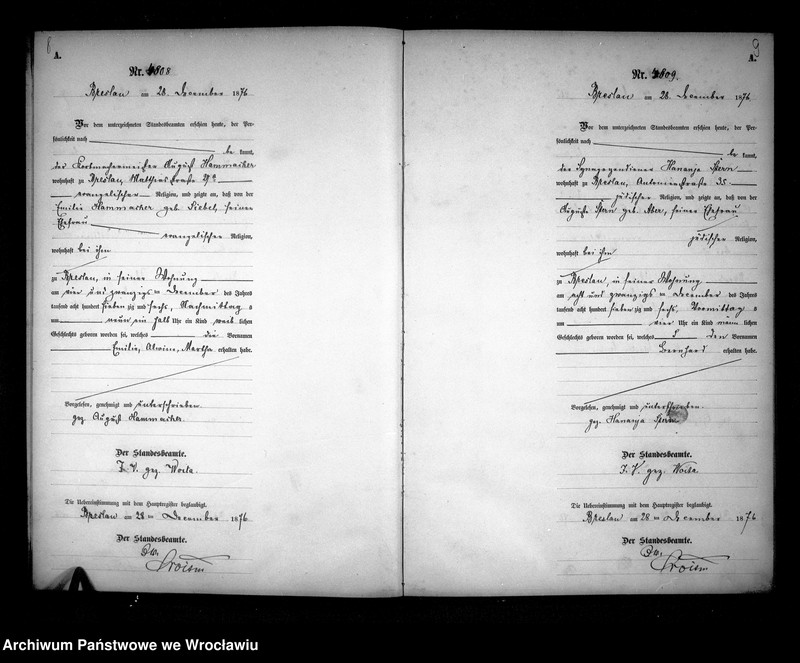 8
A.
Nr. 4808
Breslau am 28. December 1876
Vor dem unterzeichneten Standesbeamten erschien heute, der Per-
sönlichkeit nach
be kannt,
der Korbmachermeister August Hammacher
wohnhaft zu Breslau, Matthiasstraße 29a
evangelischer Religion, und zeigte an, daß von der
Emilie Hammacher geb. Siebel, seiner
Ehefrau
evangelischer Religion,
wohnhaft bei ihm
zu Breslau, in seiner Wohnung
am vier und zwanzigsten December des Jahres
tausend acht hundert sieben zig und sechs, Nachmittags
um neun ein halb Uhr ein Kind weib lichen
Geschlechts geboren worden sei, welches die Vornamen
Emilie, Alwine, Martha erhalten habe.
Vorgelesen, genehmigt und unterschrieben.
gez. August Hammacher.
Der Standesbeamte.
I. V. gez.
Die Uebereinstimmung mit dem Hauptregister beglaubigt.
Breslau am 28 ten December 1876
Der Standesbeamte.
9
A.
Nr. 4809.
Breslau am 28. December 1876
Vor dem unterzeichneten Standesbeamten erschien heute, der Per-
sönlichkeit nach
be kannt,
der Synagogendiener Hananja Stern
wohnhaft zu Breslau, Antonienstraße 35
jüdischer Religion, und zeigte an, daß von der
Auguste Stern geb. Aber, seiner Ehefrau
jüdischer Religion,
wohnhaft bei ihm
zu Breslau, in seiner Wohnung
am acht und zwanzigsten December des Jahres
tausend acht hundert sieben zig und sechs, Vormittags
um vier Uhr ein Kind männ lichen
Geschlechts geboren worden sei, welches den Vornamen
Bernhard erhalten habe.
Vorgelesen, genehmigt und unterschrieben.
gez. Hananja Stern
Der Standesbeamte.
I. V. gez.
Die Uebereinstimmung mit dem Hauptregister beglaubigt.
Breslau am 28 ten December 1876
Der Standesbeamte.
Archiwum Państwowe we Wrocławiu